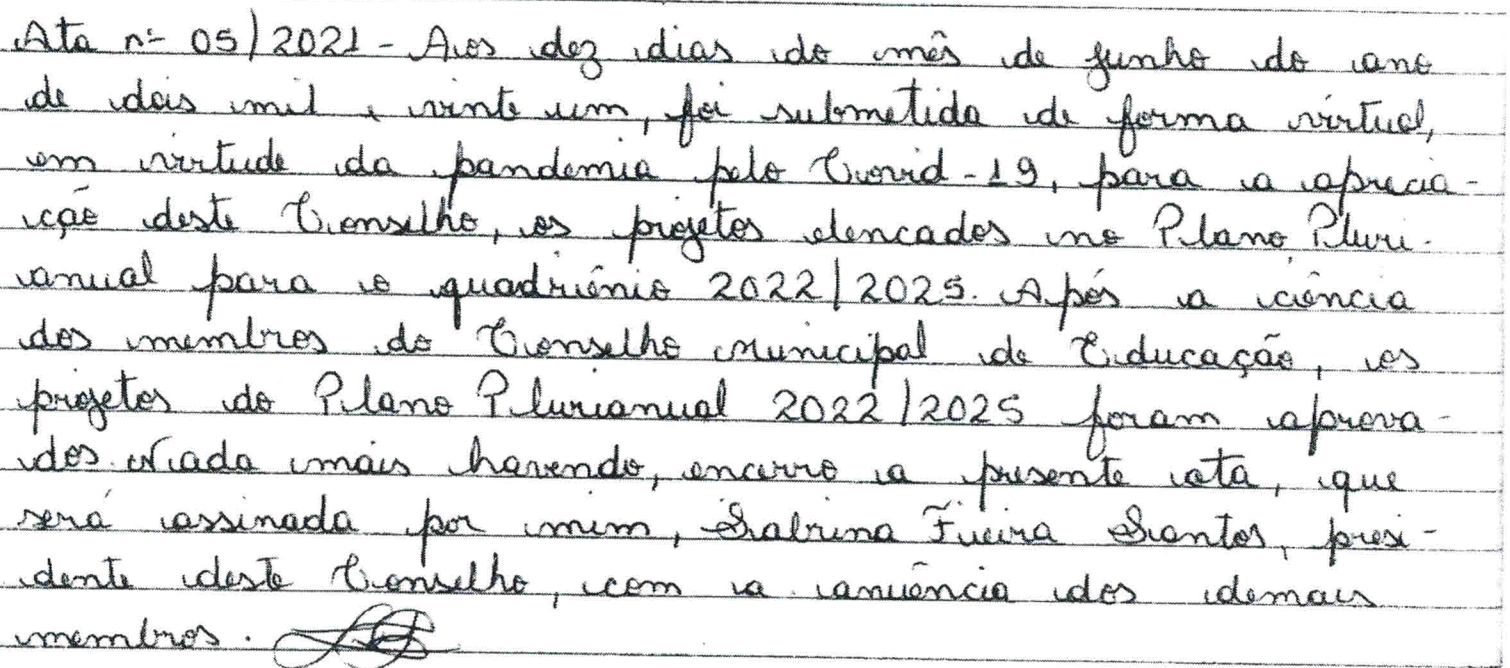 Ata nº 05/2021 - Aos dez dias do mês de junho do ano
de dois mil e vinte um, foi submetida de forma virtual,
em virtude da pandemia pelo Covid-19, para a aprecia-
ção deste Conselho, os projetos elencados no Plano Pluri-
anual para o quadriênio 2022/2025. Após a ciência
dos membros do Conselho Municipal de Educação, os
projetos do Plano Plurianual 2022/2025 foram aprova-
dos. Nada mais havendo, encerro a presente ata, que
será assinada por mim, Sabrina Santos, presi-
dente deste Conselho, com a anuência dos demais
membros.